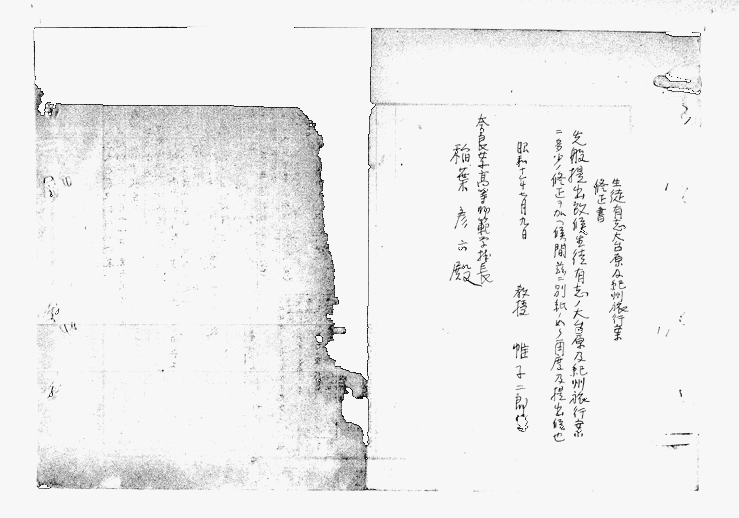 生徒有志大台原及紀州旅行案
修正書
先般提出致候生徒有志ノ大台原及紀州旅行案
ニ多少ノ修正ヲ加ヘ候間茲ニ別紙ノ如ク再度及提出候也
昭和十一年七月九日
教授 惟子二郎
奈良女子高等師範学校長
稲葉彦六殿